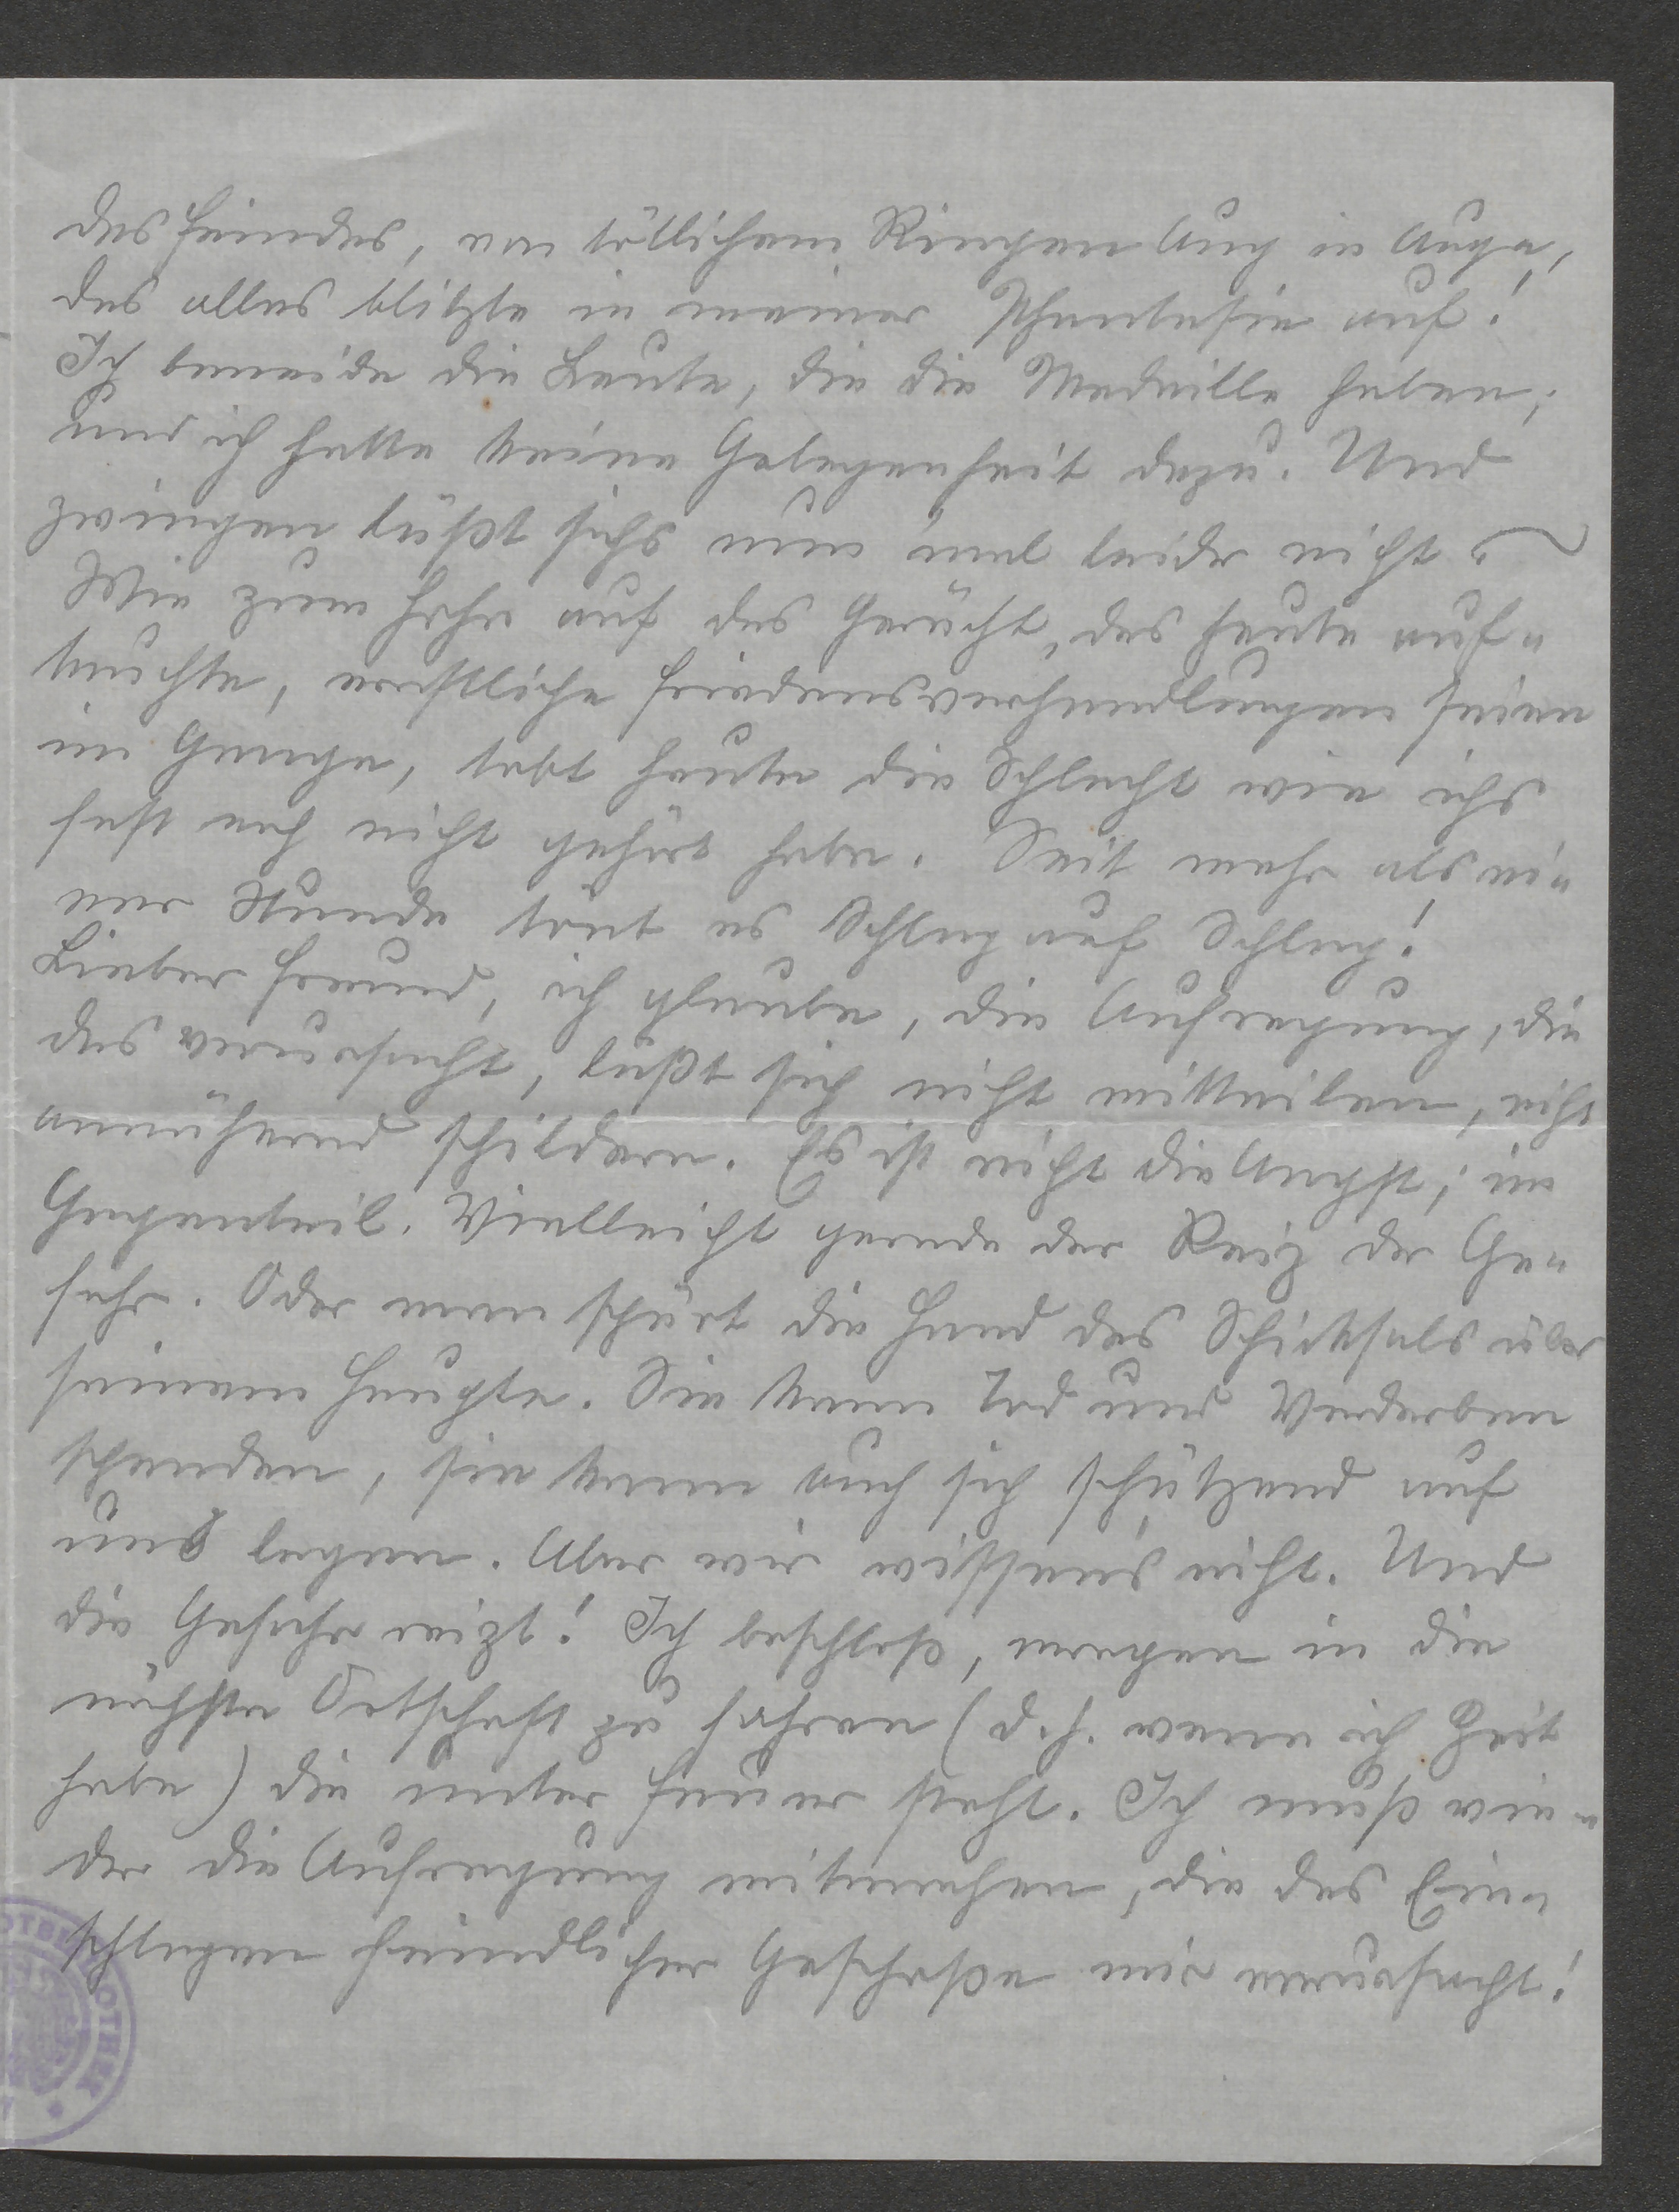 des Feindes, von tötlichem Ringen Aug in Auge,
das alles blitzte in meiner Phantasie auf!
Ich beneide die Leute, die die Medaille haben;
und ich hatte keine Gelegenheit dazu. Und
zwingen läßt sichs nun 'mal leider nicht.
Wie zum Hohn auf das Gerücht, das heute auf-
tauchte, ernstliche Friedensverhandlungen seien
im Gange, tobt heute die Schlacht wie ichs
fast noch nicht gehört habe. Seit mehr als ei-
ner Stunde tönt es Schlag auf Schlag!
Lieber Freund, ich glaube, die Aufregung, die
das verursacht, läßt sich nicht mitteilen, nicht
annähernd schildern. Es ist nicht die Angst; im
Gegenteil. Vielleicht gerade der Reiz der Ge-
fahr. Oder man spürt die Hand des Schicksals über
seinem Haupte. Sie kann Tod und Verderben
spenden, sie kann auch sich schützend auf
uns legen. Aber wir wissen's nicht. Und
die Gefahr reizt! Ich beschloß, morgen in die
nächste Ortschaft zu fahren (d.h. wenn ich Zeit
habe) die unter Feuer steht. Ich muß wie-
der die Aufregung mitmachen, die das Ein-
schlagen feindlicher Geschoße mir verursacht!